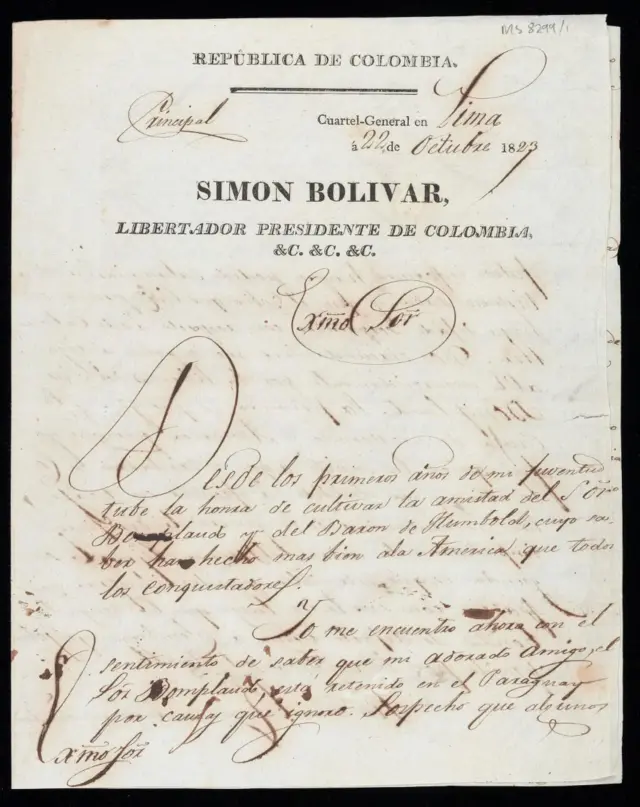 MS 8299/1
REPÚBLICA DE COLOMBIA.
Principal
Cuartel-General en Lima
á 22, de Octubre 1823
SIMON BOLIVAR,
LIBERTADOR PRESIDENTE DE COLOMBIA,
&C. &C. &C.
Exmõ Sõr
Desde los primeros años de mi juventud
tube la honra de cultivar la amistad del Sõr
Bomplaud y del Baron de Humbold, cuyo sa-
ber ha hecho mas bien ala America que todos
los conquistadores.
Yo me encuentro ahora con el
sentimiento de saber que mi adorado amigo, el
Sõr Bomplaud, está retenido en el Paraguay
por causas que ignoro. Sospecho que algunos
Exmõ Sõr